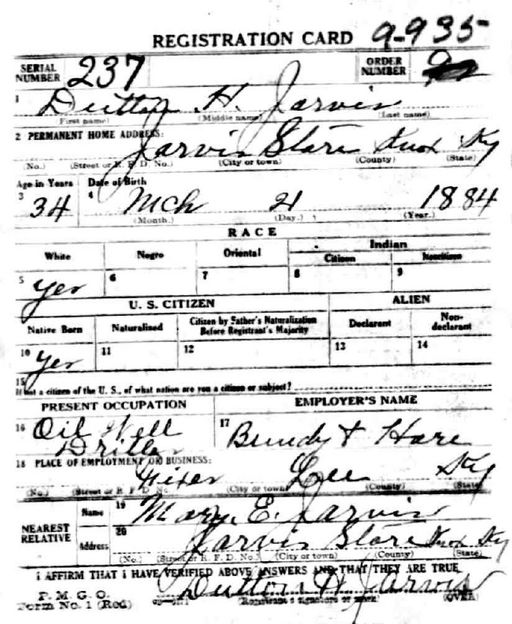 REGISTRATION CARD 9-935
SERIAL NUMBER 237 ORDER NUMBER
1 Dutton H. Jarvis
(First name) (Middle name) (Last name)
2 PERMANENT HOME ADDRESS:
Jarvis Store Knox Ky
(No.) (Street or R. F. D. No.) (City or town) (County) (State)
Age in Years Date of Birth
3 34 4 Mch 21 1884
(Month.) (Day.) (Year.)
RACE
White Negro Oriental Indian
Citizen Noncitizen
5 Yes 6 7 8 9
U. S. CITIZEN ALIEN
Native Born Naturalized Citizen by Father's Naturalization Before Registrant's Majority Declarant Non-declarant
10 Yes 11 12 13 14
15
If not a citizen of the U. S., of what nation are you a citizen or subject?
PRESENT OCCUPATION EMPLOYER'S NAME
16 Oil Well Driller 17 Bundy & Hare
18 PLACE OF EMPLOYMENT OR BUSINESS:
Lee Ky
(No.) (Street or R. F. D. No.) (City or town) (County) (State)
NEAREST RELATIVE
Name 19 Mary E. Jarvis
Address 20 Jarvis Store Knox Ky
(No.) (Street or R. F. D. No.) (City or town) (County) (State)
I AFFIRM THAT I HAVE VERIFIED ABOVE ANSWERS AND THAT THEY ARE TRUE
P. M. G. O.
Form No. 1 (Red) Dutton H. Jarvis
(Registrant's signature or mark) (OVER)